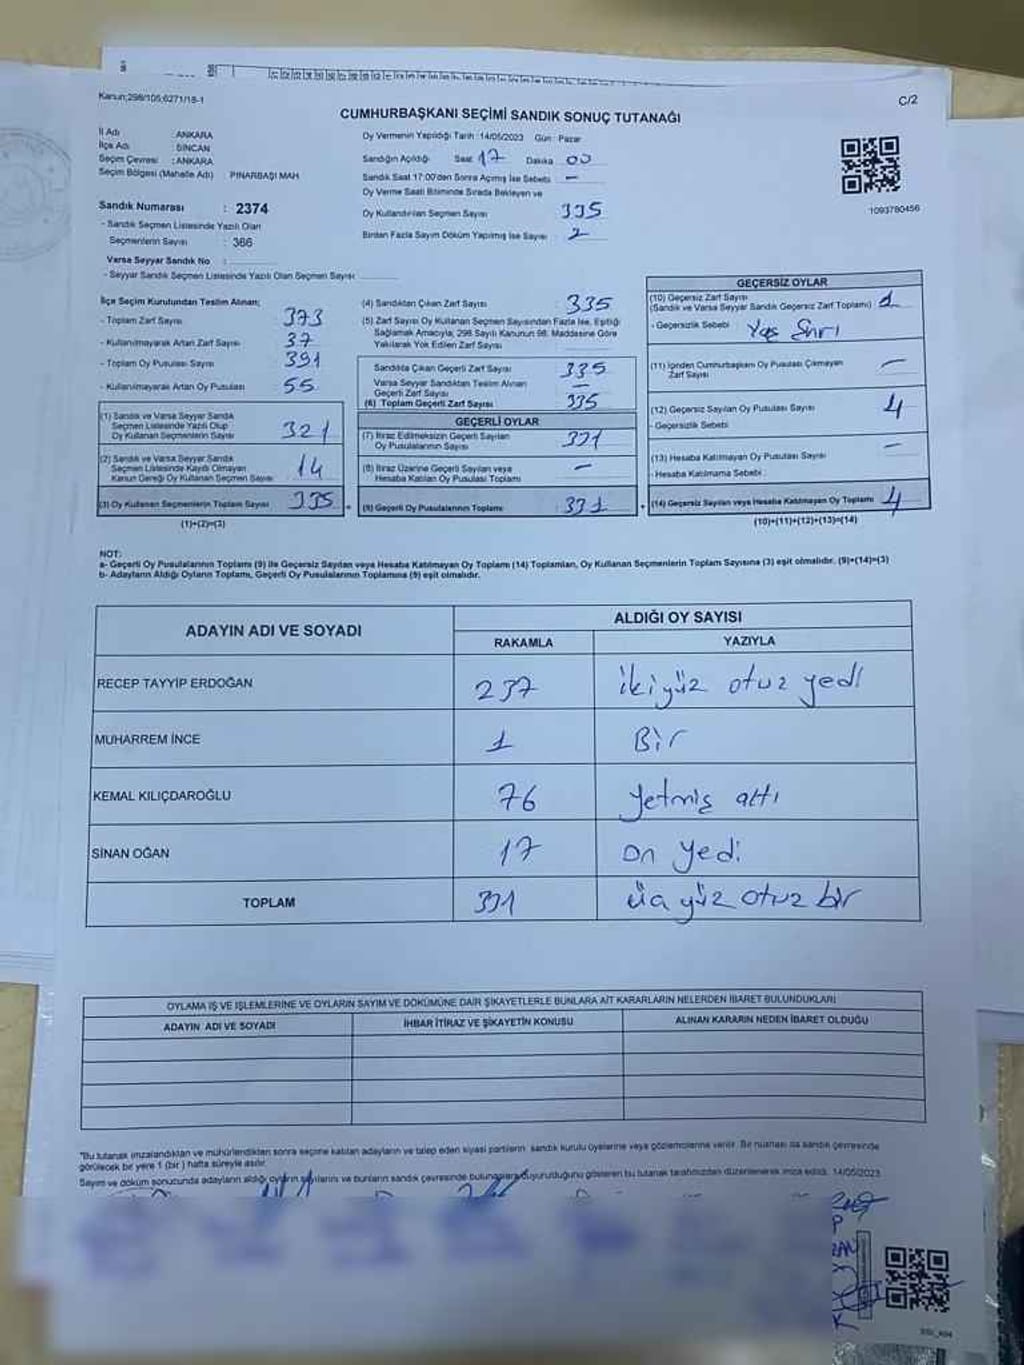 Kanun;298/105;6271/18-1
C/2
CUMHURBAŞKANI SEÇİMİ SANDIK SONUÇ TUTANAĞI
İl Adı : ANKARA
İlçe Adı : SİNCAN
Seçim Çevresi : ANKARA
Seçim Bölgesi (Mahalle Adı) : PINARBAŞI MAH.
Sandık Numarası : 2374
- Sandık Seçmen Listesinde Yazılı Olan
Seçmenlerin Sayısı : 366
Varsa Seyyar Sandık No :
- Seyyar Sandık Seçmen Listesinde Yazılı Olan Seçmen Sayısı
Oy Vermenin Yapıldığı Tarih : 14/05/2023 Gün : Pazar
Sandığın Açıldığı Saat 17 Dakika 00
Sandık Saat 17:00'den Sonra Açılmış İse Sebebi –
Oy Verme Saati Bitiminde Sırada Bekleyen ve
Oy Kullandırılan Seçmen Sayısı 335
Birden Fazla Sayım Döküm Yapılmış İse Sayısı 2
1093780456
İlçe Seçim Kurulundan Teslim Alınan;
- Toplam Zarf Sayısı 373
- Kullanılmayarak Artan Zarf Sayısı 37
- Toplam Oy Pusulası Sayısı 391
- Kullanılmayarak Artan Oy Pusulası 55
(1) Sandık ve Varsa Seyyar Sandık
Seçmen Listesinde Yazılı Olup
Oy Kullanan Seçmenlerin Sayısı 321
(2) Sandık ve Varsa Seyyar Sandık
Seçmen Listesinde Kaydı Olmayan
Kanun Gereği Oy Kullanan Seçmen Sayısı 14
(3) Oy Kullanan Seçmenlerin Toplam Sayısı 335
(1)+(2)=(3)
(4) Sandıktan Çıkan Zarf Sayısı 335
(5) Zarf Sayısı Oy Kullanan Seçmen Sayısından Fazla İse, Eşitliği
Sağlamak Amacıyla, 298 Sayılı Kanunun 98. Maddesine Göre
Yakılarak Yok Edilen Zarf Sayısı
Sandıkta Çıkan Geçerli Zarf Sayısı 335
Varsa Seyyar Sandıktan Teslim Alınan
Geçerli Zarf Sayısı –
(6) Toplam Geçerli Zarf Sayısı 335
GEÇERLİ OYLAR
(7) İtiraz Edilmeksizin Geçerli Sayılan
Oy Pusulalarının Sayısı 331
(8) İtiraz Üzerine Geçerli Sayılan veya
Hesaba Katılan Oy Pusulası Toplamı –
(9) Geçerli Oy Pusulalarının Toplamı 331
GEÇERSİZ OYLAR
(10) Geçersiz Zarf Sayısı
(Sandık ve Varsa Seyyar Sandık Geçersiz Zarf Toplamı) 1
- Geçersizlik Sebebi
(11) İçinden Cumhurbaşkanı Oy Pusulası Çıkmayan
Zarf Sayısı –
(12) Geçersiz Sayılan Oy Pusulası Sayısı 4
- Geçersizlik Sebebi
(13) Hesaba Katılmayan Oy Pusulası Sayısı –
- Hesaba Katılmama Sebebi
(14) Geçersiz Sayılan veya Hesaba Katılmayan Oy Toplamı 4
(10)+(11)+(12)+(13)=(14)
NOT:
a- Geçerli Oy Pusulalarının Toplamı (9) ile Geçersiz Sayılan veya Hesaba Katılmayan Oy Toplamı (14) Toplamları, Oy Kullanan Seçmenlerin Toplam Sayısına (3) eşit olmalıdır. (9)+(14)=(3)
b- Adayların Aldığı Oyların Toplamı, Geçerli Oy Pusulalarının Toplamına (9) eşit olmalıdır.
ADAYIN ADI VE SOYADI
ALDIĞI OY SAYISI
RAKAMLA YAZIYLA
RECEP TAYYİP ERDOĞAN 237 iki yüz otuz yedi
MUHARREM İNCE 1 Bir
KEMAL KILIÇDAROĞLU 76 Yetmiş altı
SİNAN OĞAN 17 on yedi
TOPLAM 331 üç yüz otuz bir
OYLAMA İŞ VE İŞLEMLERİNE VE OYLARIN SAYIM VE DÖKÜMÜNE DAİR ŞİKAYETLERLE BUNLARA AİT KARARLARIN NELERDEN İBARET BULUNDUKLARI
ADAYIN ADI VE SOYADI İHBAR İTİRAZ VE ŞİKAYETİN KONUSU ALINAN KARARIN NEDEN İBARET OLDUĞU
*Bu tutanak imzalandıktan ve mühürlendikten sonra seçime katılan adayların ve talep eden siyasi partilerin sandık kurulu üyelerine veya gözlemcilerine verilir. Bir nüshası da sandık çevresinde
görülecek bir yere 1 (bir) hafta süreyle asılır.
Sayım ve döküm sonucunda adayların aldığı oyların sayılarını ve bunların sandık çevresinde bulunanlara duyurulduğunu gösteren bu tutanak tarafımızdan düzenlenerek imza edildi. 14/05/2023